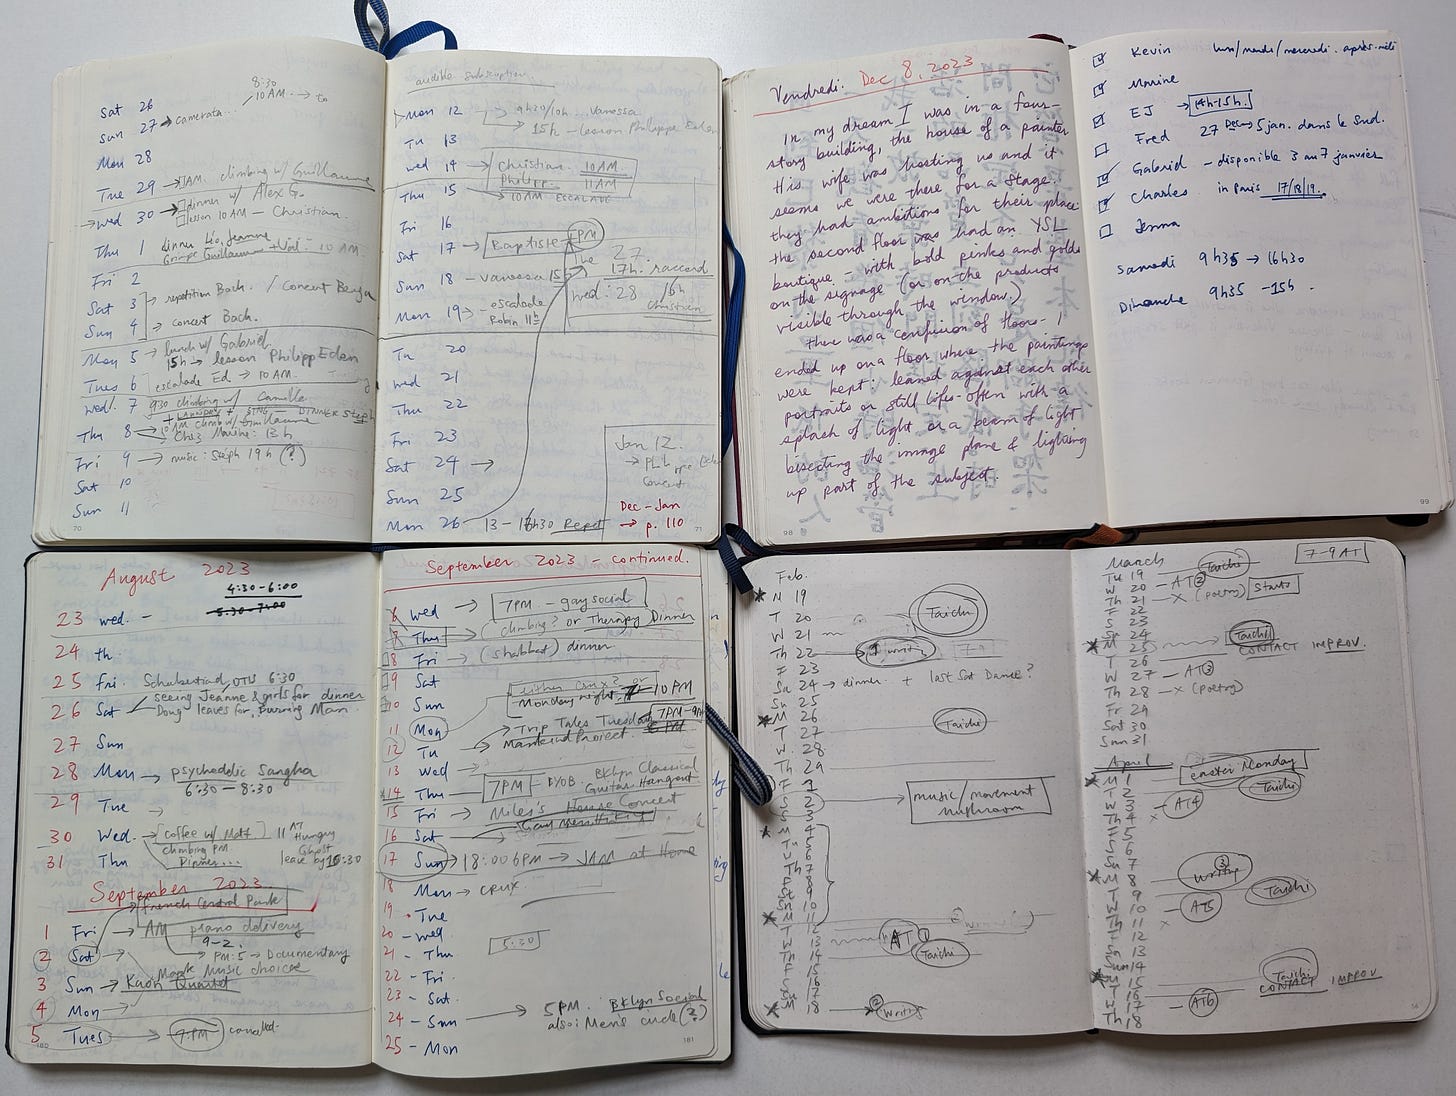 Sat 26
8:30
10 AM → to
Sun 27 → camerata...
Mon 28
Tue 29 → 9AM climbing w/ Guillaume
dinner w/ Alex G.
Wed 30 → lesson 10AM – Christian
Thu 1 dinner Léo, Jeanne
Grimpe Guillaume + Val – 10 AM
Fri 2
Sat 3 → repetition Bach. / Concert
Sun 4 → concert Bach.
Mon 5 → lunch w/ Gabriel
15h → lesson Philipp Eden
Tues 6 escalade Ed → 10 AM.
Wed. 7 9:30 climbing w/ Camille
+ LAUNDRY + DINNER Steph
Thu 8 → 10 AM climb w/ Guillaume
Chez Marine: 13h
Fri 9 → music: Steph 19h (?)
Sat 10
Sun 11
70
audible subscription
Mon 12 → 9h30/10h ... Vanessa
→ 15h – lesson Philippe Eden
Tu 13
Wed 14 → Christian 10AM
Philipp 11AM
Thu 15 → 10AM ESCALADE
Fri 16
Sat 17 → Baptiste 1PM
Tue 27
17h. raccord
Sun 18 – vanessa 15
Wed: 28 16h
Christian
Mon 19 → – escalade
Robin 11h
Tu 20
Wed 21
Thu 22
Fri 23
Jan 12.
→ Philippe Eden
Concert
Sat 24 →
Sun 25
Dec – Jan
→ p. 110
Mon 26 13 – 16h30 Repet
71
Vendredi. Dec 8, 2023
In my dream I was in a four-
story building, the house of a painter
this wife was hosting us and it
seems we were there for a stage.
they had ambitions for their place
the second floor was had an YSL
boutique – with bold pinks and golds
on the signage (or on the products
visible through the window.)
there was a confusion of floors – I
ended up on a floor where the paintings
were kept: leaned against each other
portraits or still lifes – often with a
splash of light or a beam of light
bisecting the image plane & lighting
up part of the subject.
98
Kevin lun/mardi/mercredi. après-midi
Marine
EJ → 14h-15h.
Fred 27 Dec → 5 jan. dans le sud.
Gabriel – disponible 3 au 7 janvier
Charles in Paris 17/18/19.
Jenna
Samedi 9h35 → 16h30
Dimanche 9h35 – 15h.
99
August 2023
4:30 – 6:00
5:30 – 7:00
23 wed. –
24 th.
25 Fri. Schubertiad, OTIS 6:30
26 Sat seeing Jeanne & girls for dinner
Doug leaves for Burning Man
27 Sun
28 Mon → psychedelic Sangha
6:30 – 8:30
29 Tue →
30 Wed. → coffee w/ Matt
climbing PM
11 AT
Hungry
Ghost
31 Thu Dinner...
leave by 10:30
September 2023
French Central Park
1 Fri → AM piano delivery
9-2.
2 Sat → PM: 5 → Documentary
Mark Music choices
3 Sun → Kron Quartet
4 Mon
5 Tues → 7PM cancelled
180
September 2023 – continued.
6 Wed → 7PM – gay social
7 Thu (climbing? or Therapy Dinner
8 Fri → (shabbat) dinner
9 Sat
either Crux? or
10 Sun Monday night 7-10 PM
11 Mon
7PM-9PM
12 Tu → Trip Tales Tuesday 6PM
Mankind Project.
13 Wed
14 Thu 7PM – BYOB. Bklyn Classical
Guitar Hangout
15 Fri → Miles's House Concert
16 Sat
17 Sun → 18:00 6PM → JAM at Home
18 Mon → CRUX
19 – Tue
20 – wed.
5:30
21 – Thu
22 – Fri.
23 – Sat.
24 – Sun → 5PM. Bklyn Social
also: Men's circle (?)
25 – Mon
181
Feb.
M 19
T 20 Taichi
W 21
Th 22 writing
F 23
Sa 24 → dinner + last Sat Dance?
Sn 25
M 26 Taichi
T 27
W 28
Th 29
F 1
S 2 → music/movement
mushroom
S 3
M 4
Tu 5
W 6
Th 7
F 8
St 9
Sn 10
M 11
T 12
W 13 AT 1
Th 14 Taichi
F 15
S 16
S 17
M 18 → 2 Writing
March
7-9 AT
Tu 19 Taichi
W 20 – AT 2
Th 21 – x (poetry) Start?
F 22
S 23
Sn 24 Taichi
M 25 CONTACT IMPROV.
T 26
W 27 – AT 3
Th 28 – x (poetry)
Fr 29
Sat 30
Sun 31
April
easter Monday
M 1 Taichi
T 2
W 3 – AT4
Th 4 x
F 5
S 6
Su 7
3
M 8 writing
T 9 Taichi
W 10 – AT5
Th 11 x
F 12
S 13
Sun 14
Taichi
M 15 CONTACT IMPROV
T 16
W 17 – AT6
Th 18